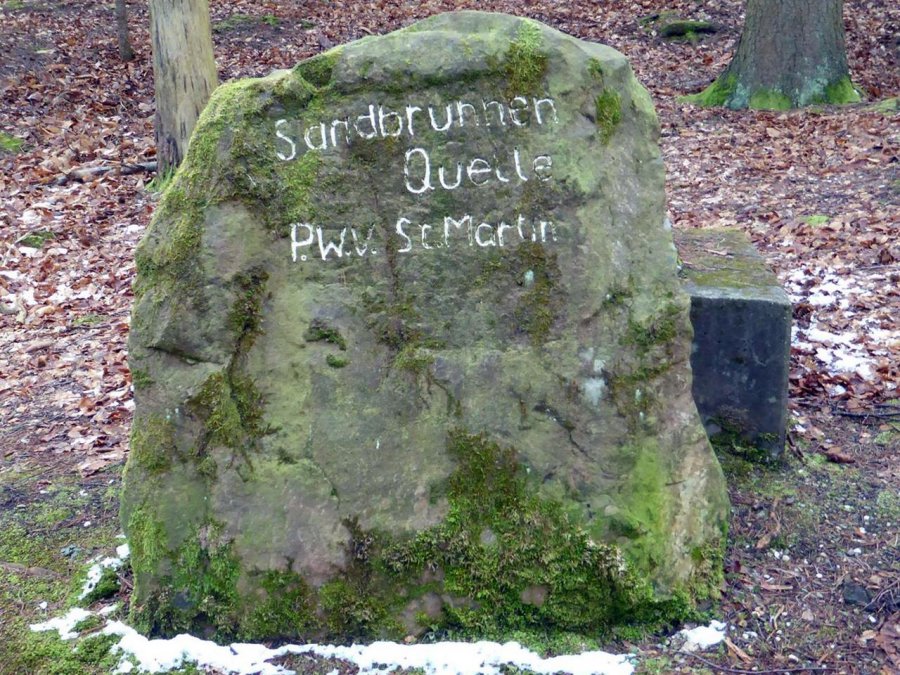 Sandbrunnen
Quelle
P.W.V. St.Martin